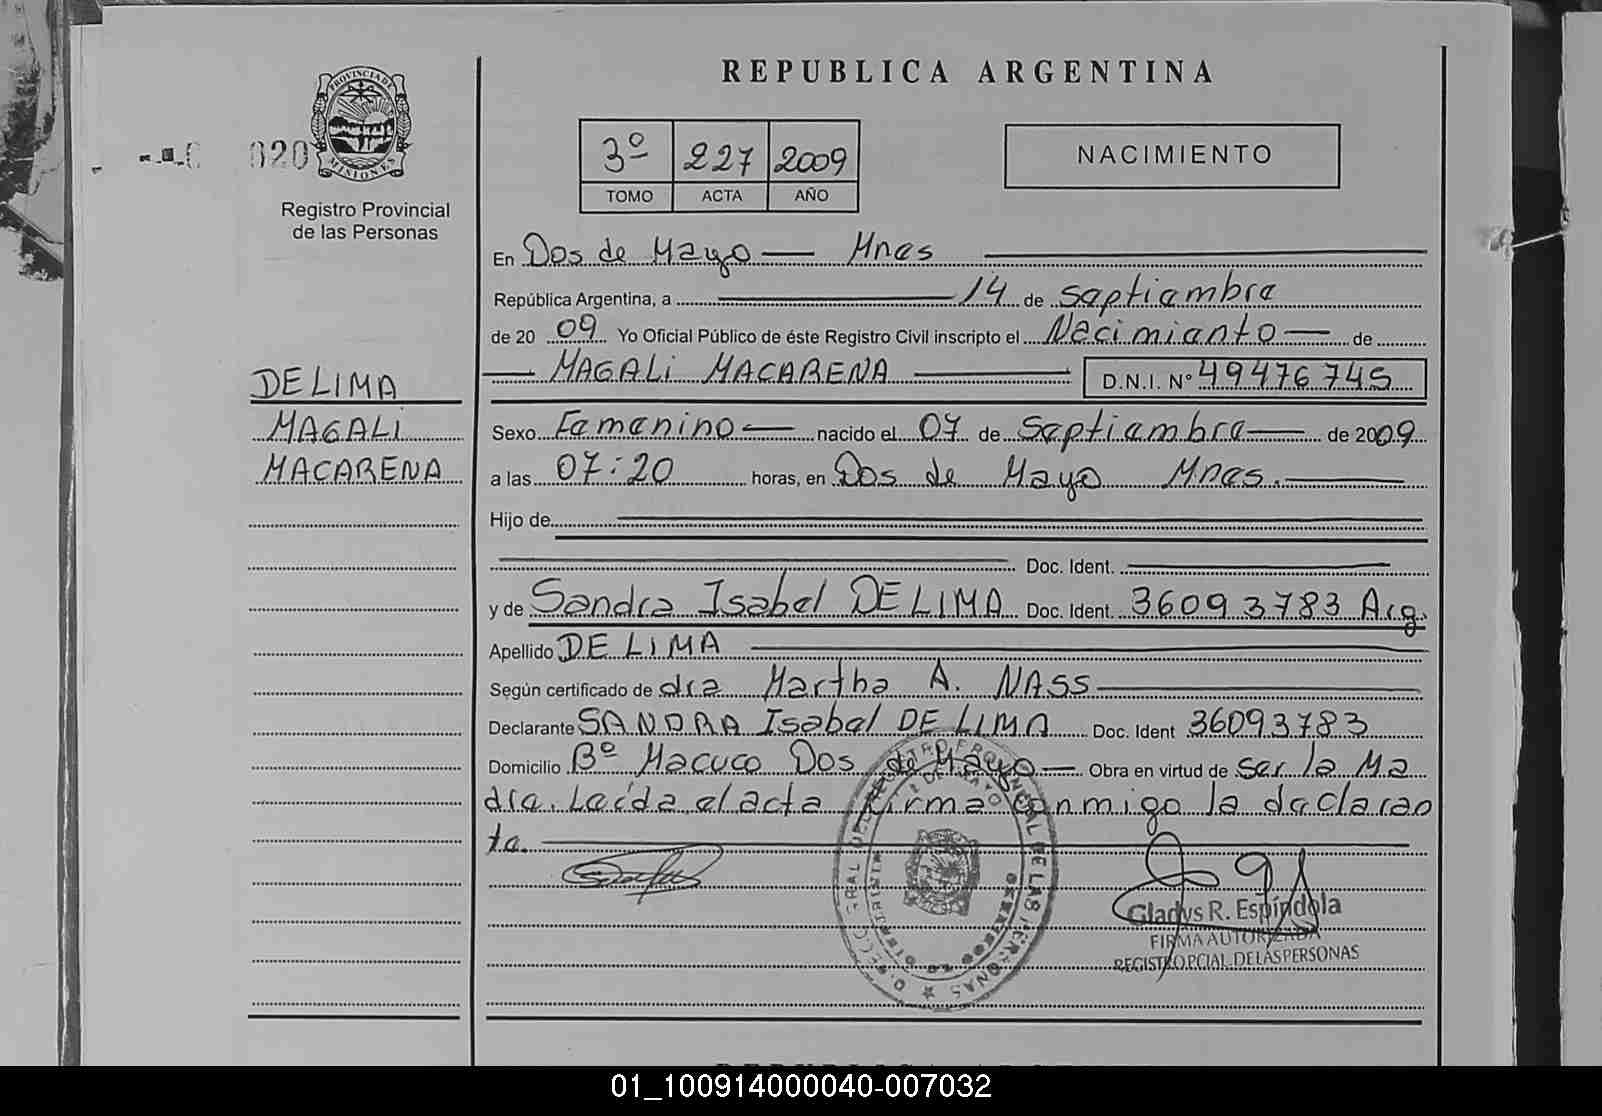 REPUBLICA ARGENTINA
PROVINCIA DE MISIONES
020
Registro Provincial
de las Personas
3º 227 2009
TOMO ACTA AÑO
NACIMIENTO
En Dos de Mayo — Mnes
República Argentina, a 14 de septiembre
de 20 09 Yo Oficial Público de éste Registro Civil inscripto el Nacimiento — de
MAGALI MACARENA D.N.I. Nº 49476745
DE LIMA
MAGALI
MACARENA
Sexo Femenino — nacido el 07 de Septiembre — de 2009
a las 07:20 horas, en Dos de Mayo Mnes.
Hijo de
Doc. Ident.
y de Sandra Isabel DE LIMA Doc. Ident. 36093783 Arg.
Apellido DE LIMA
Según certificado de dra Martha A. NASS
Declarante SANDRA Isabel DE LIMA Doc. Ident 36093783
Domicilio Bº Macuco Dos de Mayo — Obra en virtud de ser la Ma
dre. Leída el acta firma conmigo la declaran
te.
Gladys R. Espíndola
FIRMA AUTORIZADA
REGISTRO PCIAL. DE LAS PERSONAS
01_100914000040-007032